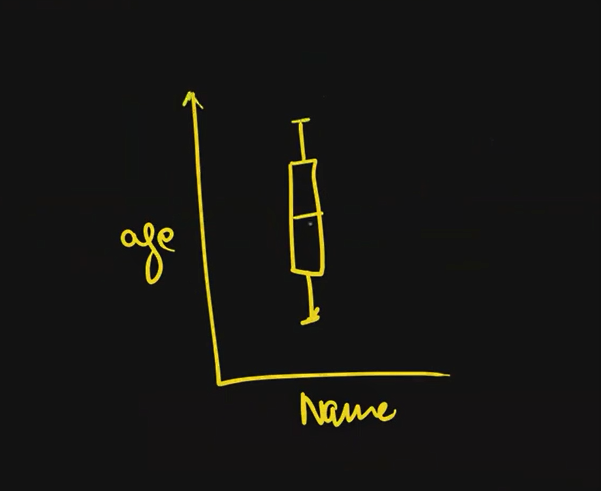 age
Name